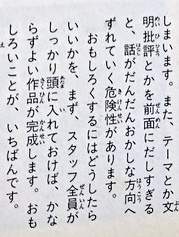 しまいます。また、テーマとか文
明批評とかを前面にだしすぎる
と、話がだんだんおかしな方向へ
ずれていく危険性があります。
おもしろくするにはどうしたら
いいかを、まず、スタッフ全員が
しっかり頭に入れておけば、かな
らずよい作品が完成します。おも
しろいことが、いちばんです。